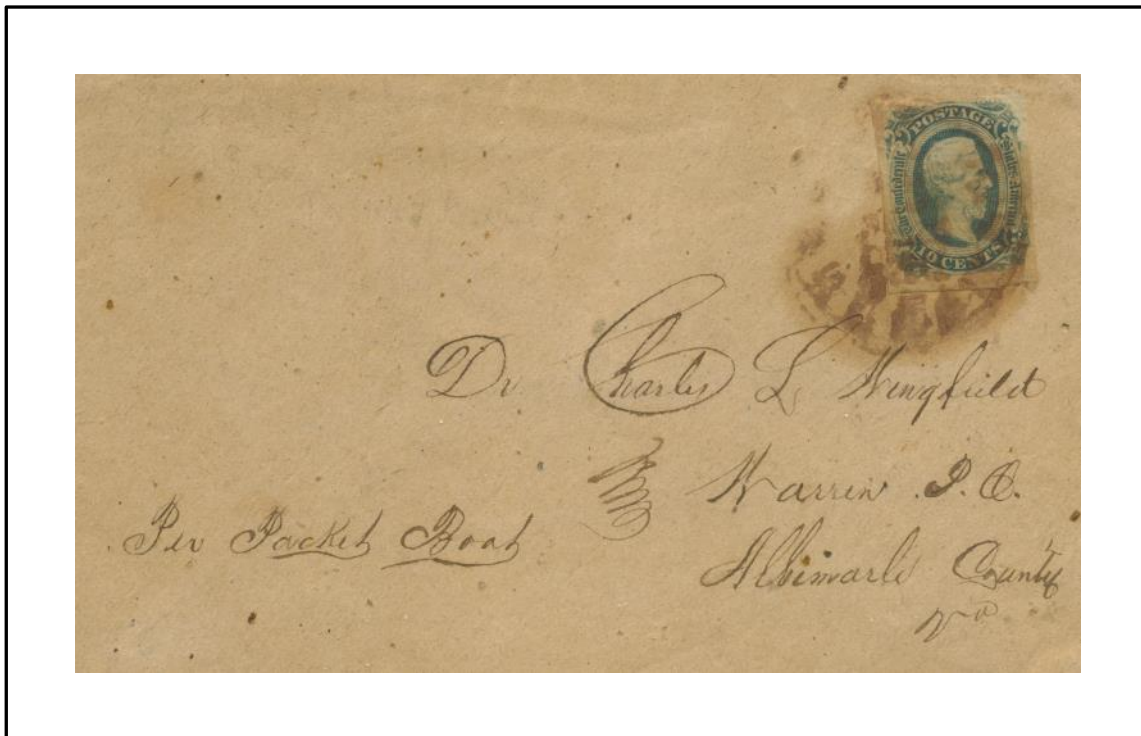 POSTAGE
The Confederate States America
10 CENTS
Dr Charles L Wingfield
Warren P. O.
Per Packet Boat
Albemarle County
Va